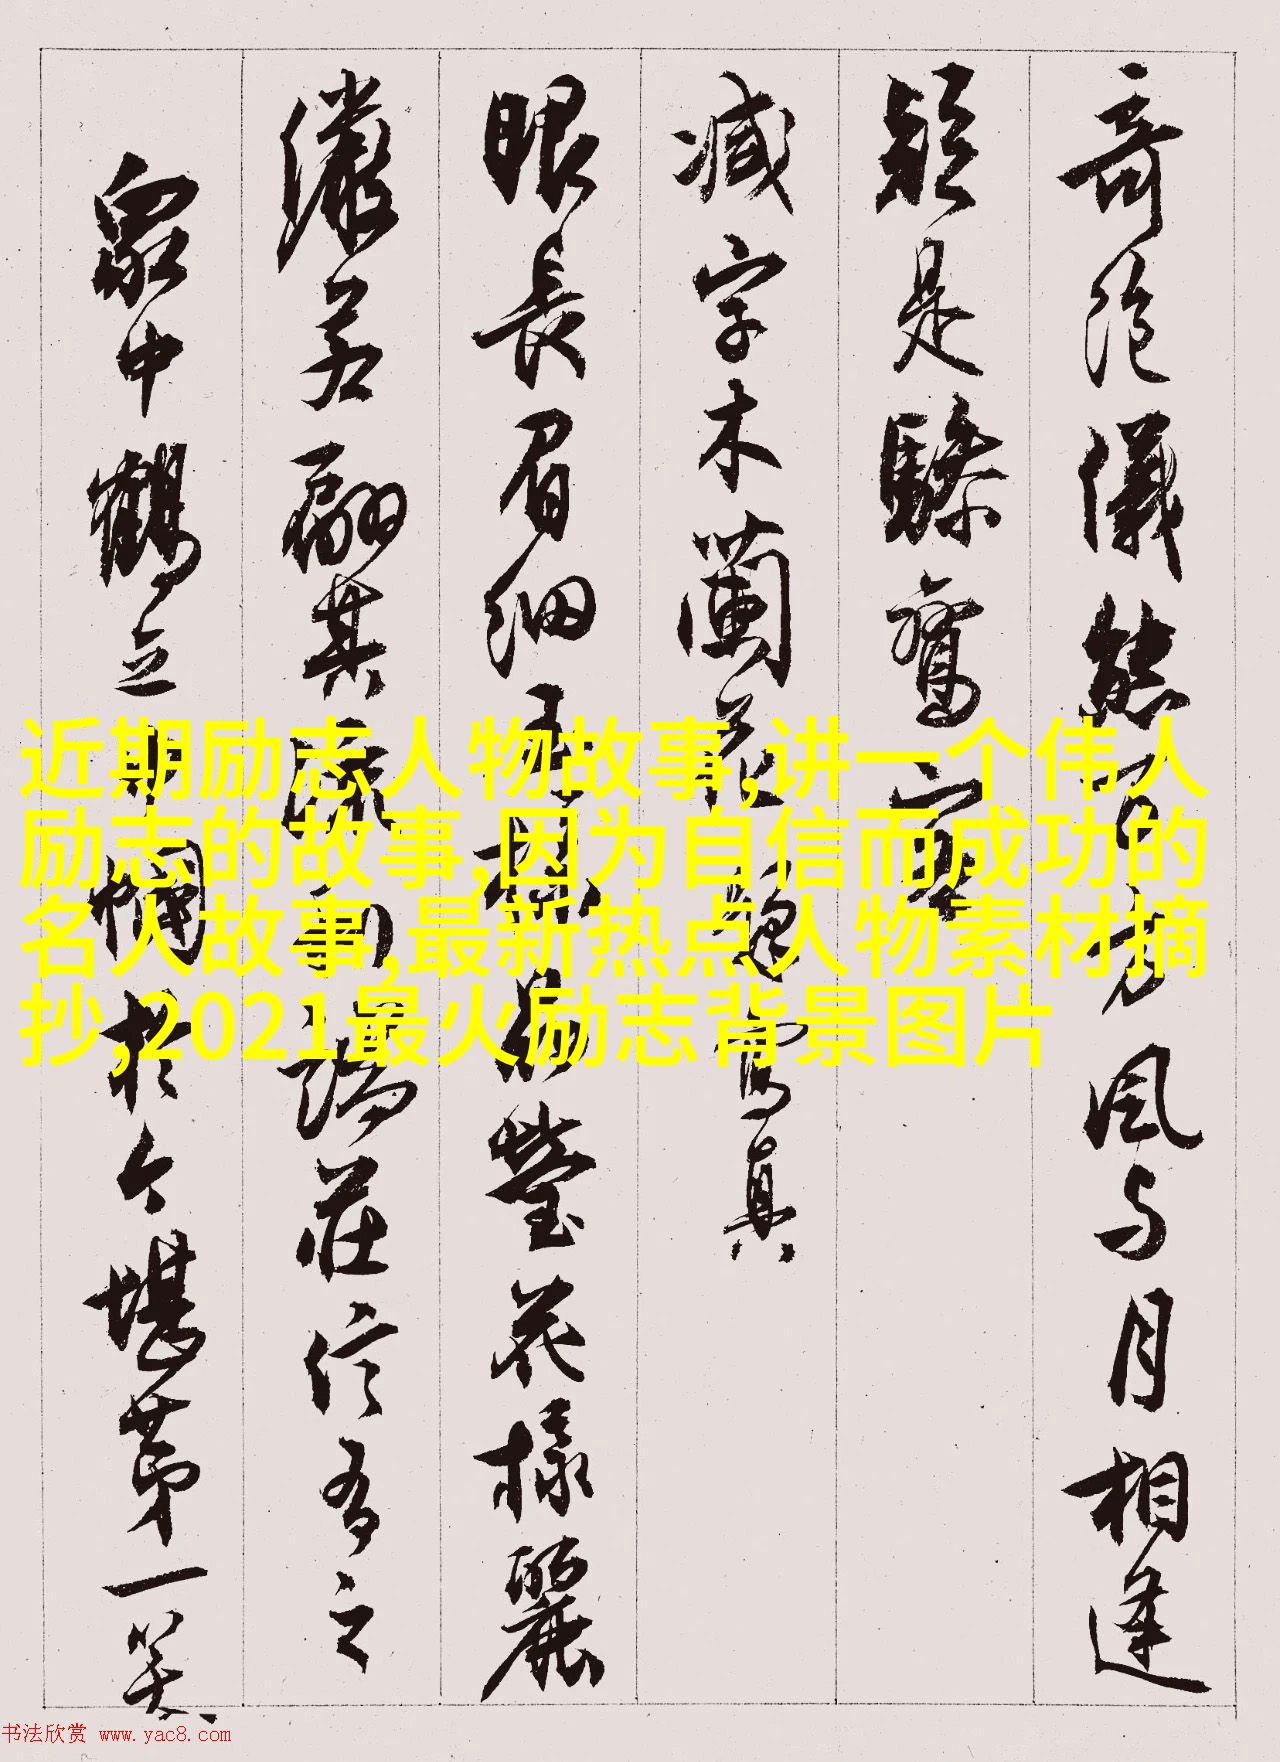 奇儀態方風与月相逢
疑是驂鸞
减字木蘭花寫真
眼長眉細瑩花樣麗
瀟若翩其流利端莊信有之
衆中鶴立於今堪第一笑
近期励志人物故事,讲一个伟人
励志的故事,因为自信而成功的
名人故事,最新热点人物素材摘
抄,2021最火励志背景图片
书法欣赏 www.yac8.com